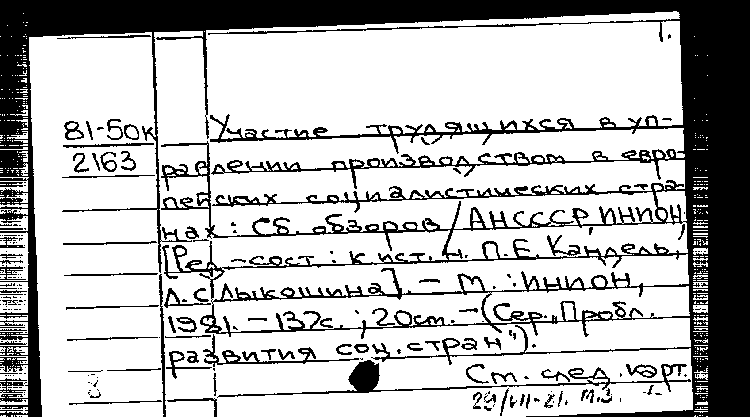 1.
81-50к
2163
Участие трудящихся в уп-
равлении производством в евро-
пейских социалистических стра-
нах: Сб. обзоров / АН СССР, ИНИОН;
[Ред.-сост.: к.ист.н. П.Е. Кандель,
Л.С. Лыкошина]. - М.: ИНИОН,
1981. - 137с.; 20см. - (Сер. "Пробл.
развития соц. стран").
См. след. карт.
29/VII-81. М.З.